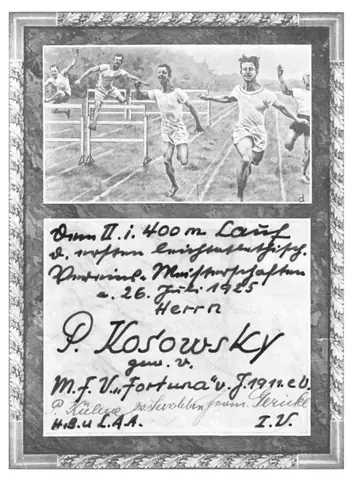 Dem II. i. 400 m Lauf
d. ersten leichtathletisch.
Vereins-Meisterschaften
a. 26. Juli 1925
Herrn
P. Kosowsky
gew. v.
M.F.V. „Fortuna" v. J. 1911. e.V.
P. Kühne
H.B.u.L.A.A. I.V.
d